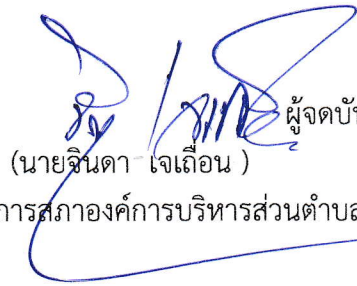 ผู้จดบัน
(นายจินดา เจเถื่อน )
การสภาองค์การบริหารส่วนตำบล